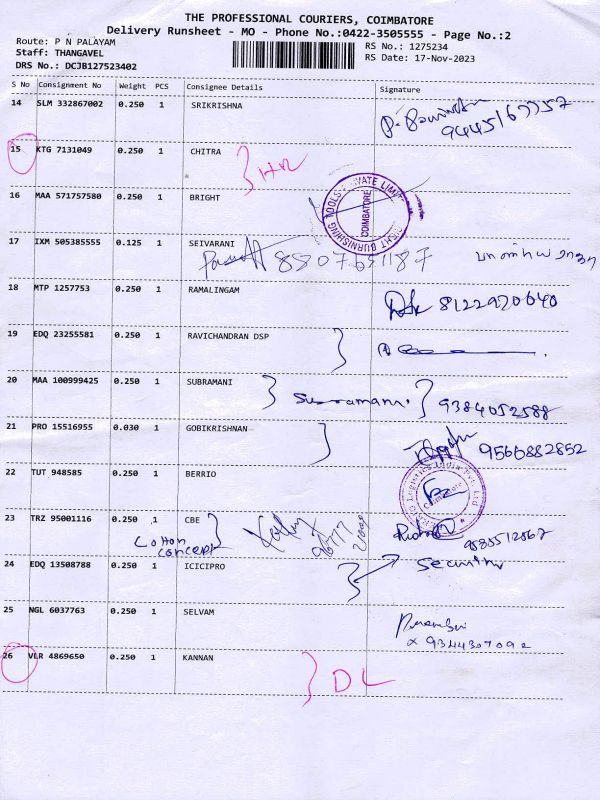 THE PROFESSIONAL COURIERS, COIMBATORE
Delivery Runsheet - MO - Phone No.:0422-3505555 - Page No.:2
Route: P N PALAYAM
RS No.: 1275234
Staff: THANGAVEL
RS Date: 17-Nov-2023
DRS No.: DCJB127523402
S No Consignment No Weight PCS Consignee Details Signature
14 SLM 332867002 0.250 1 SRIKRISHNA
15 KTG 7131049 0.250 1 CHITRA
16 MAA 571757580 0.250 1 BRIGHT
COIMBATORE
17 IXM 505385555 0.125 1 SEIVARANI
18 MTP 1257753 0.250 1 RAMALINGAM
8122920640
19 EDQ 23255581 0.250 1 RAVICHANDRAN DSP
20 MAA 100999425 0.250 1 SUBRAMANI
9384052588
21 PRO 15516955 0.030 1 GOBIKRISHNAN
9566882852
22 TUT 948585 0.250 1 BERRIO
23 TRZ 95001116 0.250 1 CBE
Cotton concept
24 EDQ 13508788 0.250 1 ICICIPRO
Security
25 NGL 6037763 0.250 1 SELVAM
9344307092
26 VLR 4869650 0.250 1 KANNAN
DL